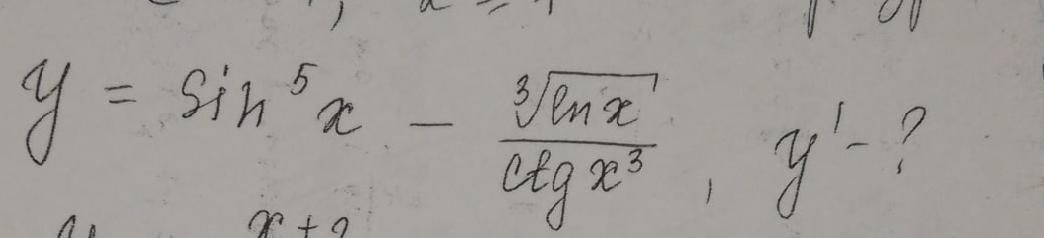 y = sin⁵x − ∛(ln x) / ctg x³, y' − ?
x + 2